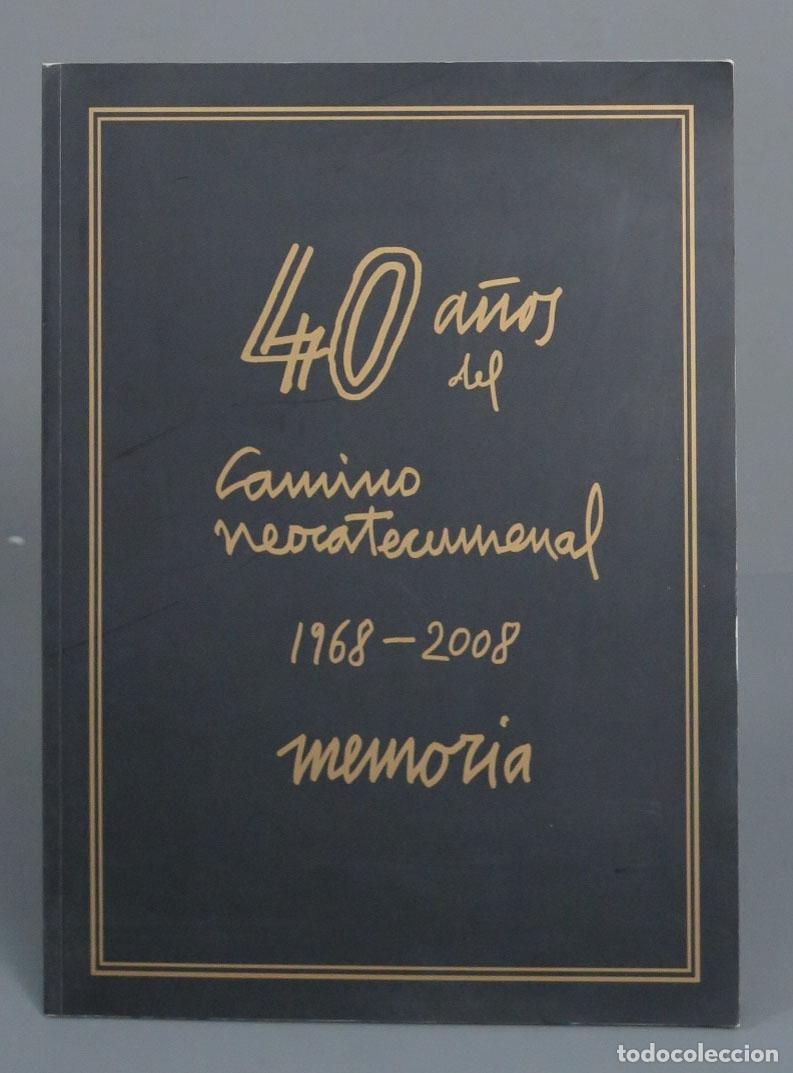 40 años
del
Camino
neocatecumenal
1968-2008
memoria
todocoleccion